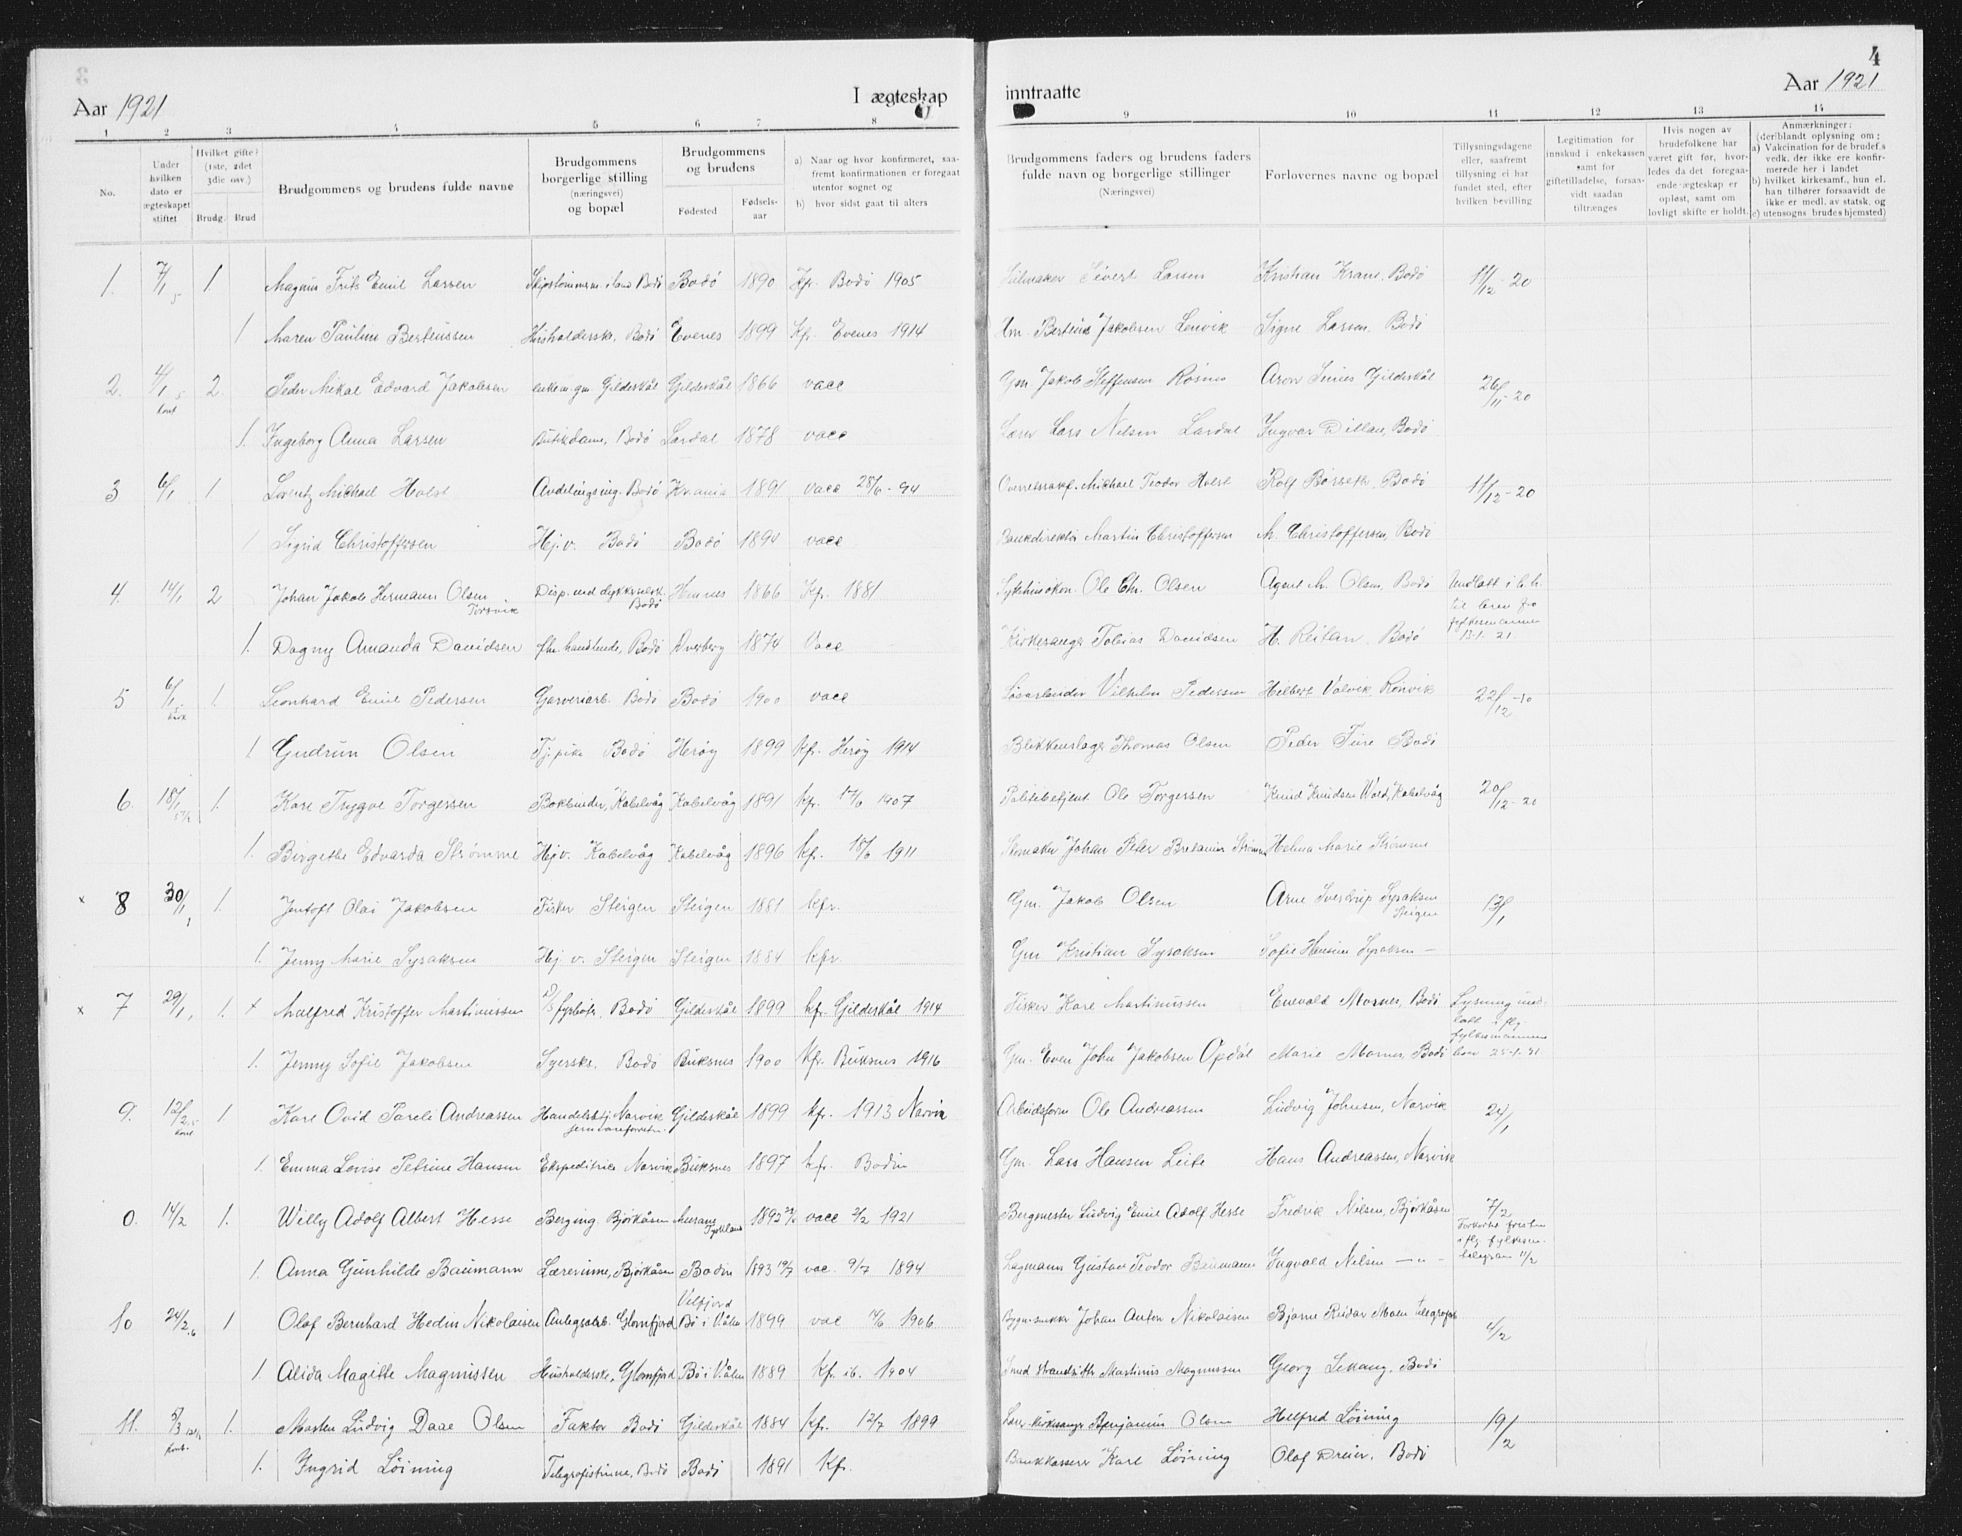 4
Aar 1921
I ægteskap
inntraatte
Aar 1921
1 2 3 4 5 6 7 8 9 10 11 12 13 14
No.
Under hvilken dato er ægteskapet stiftet
Hvilket gifte? (1ste, 2det 3die osv.)
Brudg. Brud
Brudgommens og brudens fulde navne
Brudgommens borgerlige stilling (næringsvei) og bopæl
Brudgommens og brudens
Fødested
Fødsels-aar
a) Naar og hvor konfirmeret, saafremt konfirmationen er foregaat utentor sognet og
b) hvor sidst gaat til alters
Brudgommens faders og brudens faders fulde navn og borgerlige stillinger (Næringsvei)
Forlovernes navne og bopæl
Tillysningsdagene eller, saafremt tillysning ei har fundet sted, efter hvilken bevilling
Legitimation for innskud i enkekassen samt for giftetilladelse, forsaavidt saadan tiltrænges
Hvis nogen av brudefolkene har været gift før, hvorledes da det foregaaende ægteskap er opløst, samt om lovligt skifte er holdt.
Anmærkninger: (deriblandt oplysning om; a) Vakcination for de brudef.s vedk. der ikke ere konfirmerede her i landet b) hvilket kirkesamf., hun el. han tilhører forsaavidt de ikke er medl. av statsk. og c) utensogns brudes hjemsted)
1. 7/1 1 Magnus Frits Emil Larsen Skipstømmerm. Bodø Bodø 1890 Kfr. Bodø 1905 Seilmaker Sivert Larsen Kristian Krane, Bodø 11/12-20
1 Maren Pauline Berteussen Husholdersk. Bodø Evenes 1899 Kfr. Evenes 1914 Gm. Berteus Jakobsen Lenvik Signe Larsen Bodø
2. 4/1 2. Peder Mikal Edvard Jakobsen enkem. gm Gildeskål Gildeskål 1866 vacc Gm. Jakob Steffensen Aron Gildeskål 26/11-20
1. Ingeborg Anna Larsen Butikdame, Bodø Lardal 1878 vacc Lærer Lars Nilsen Lardal Ingvar Dillan, Bodø
3 6/1 1 Lorentz Mikhael Holst Avdelingsing. Bodø Kr.ania 1891 vacc 28/6-94 Overretssakf. Mikhael Teodor Holst Rolf Børseth, Bodø 11/12-20
1 Sigrid Christoffersen Hj.v. Bodø Bodø 1894 vacc Bankdirektør Martin Christoffersen M. Christoffersen, Bodø
4. 14/1 2 Johan Jakob Hermann Olsen Torsvik Disp. ved Bodø Hemnes 1866 Kfr. 1881 Ole Chr. Olsen Agent M. Olsen, Bodø Undlatt i h.h. til brev fra fylkesmannen 13-1-21
1. Dagny Amanda Davidsen fhv. handlende, Bodø Dverberg 1874 Vacc Kirkesanger Tobias Davidsen H. Reitan, Bodø
5 6/1 1. Leonhard Emil Pedersen Garveriarb. Bodø Bodø 1900 vacc Løsarbeider Vilhelm Pedersen Helbert Valvik Rønvik 22/12-20
1. Gudrun Olsen Tj.pike Bodø Herøy 1899 kfr. Herøy 1914 Blikkenslager Thomas Olsen Peder Bodø
6. 18/1 1. Kåre Trygve Torgersen Bokbinder, Kabelvåg Kabelvåg 1891 kfr. 1907 Politibetjent Ole Torgersen Knud Knudsen Wold, Kabelvåg 20/12-20
1. Birgethe Edvarda Strømme Hj.v. Kabelvåg Kabelvåg 1896 kfr. 18/6 1911 Skomaker Johan Peter Strømme Helma Marie Strømme
x 8 30/1 1. Jentoft Olai Jakobsen Fisker Steigen Steigen 1881 kfr. Gm. Jakob Olsen Arne Sverdrup Sysaksen Steigen 13/1
1. Jenny Marie Sysaksen Hj.v. Steigen Steigen 1884 kfr. Gm Kristian Sysaksen Sofie Hansine Sysaksen —
x 7 29/1 1. x Malfred Kristoffer Martinussen fyrbøt. Bodø Gildeskål 1899 kfr. Gildeskål 1914 Fisker Kare Martinussen Enevold Mornes, Bodø Lysning undlatt i flg. fylkesmannens brev 25-1-21
1. Jenny Sofie Jakobsen Syerske. Bodø Buksnes 1900 kfr. Buksnes 1916 Gm. Even John Jakobsen Opdøl Marie Mornes, Bodø
9. 12/2 1. Kare Ovid Pareli Andreassen Handelsbtj Narvik jernvareforretn. Gildeskål 1899 kfr. 1913 Narvik Arbeidsform Ole Andreassen Ludvig Johnsen, Narvik 24/1
1. Emma Lovise Petrine Hansen Ekspeditrice Narvik Buksnes 1897 kfr. Bodin Gm. Lars Hansen Leite Hans Andreassen, Narvik
0. 14/2 1. Willy Adolf Albert Hesse Berging. Bjørkåsen Tyskland 1892 vacc 2/2 1921 Bergmester Ludvig Emil Adolf Hesse Fredrik Nilsen, Bjørkåsen 7/2 Forkortet frist i flg fylkesm. telegram 11/2
1. Anna Gunhilde Baumann Lærerinne, Bjørkåsen Bodin 1893 vac. 9/7 1894 Lagmann Gustav Teodor Baumann Ingvald Nilsen —"—
10 24/2 1 Olaf Bernhard Hedin Nikolaisen Anlegsarb. Glomfjord Velfjord Bø i V.ålen 1899 vac 1906 Bygn.snekker Johan Anton Nikolaisen Bjarne Reidar Moen telegrafist 4/2
1. Alida Magitte Magnussen Husholderske, Glomfjord Bø i V.ålen 1889 Kfr. ib. 1904 Smed Strandsitter Martinus Magnussen Georg Lekang, Bodø
11. 5/3 1. Morten Ludvig Daae Olsen Faktor Bodø Gildeskål 1884 kfr. 12/7 1899 Lærer Kirkesanger Benjamin Olsen Helfred Löining 19/2
1. Ingrid Löining Telegrafistinne, Bodø Bodø 1891 Kfr. Bankkasserer Karl Löining Olaf Dreier, Bodø